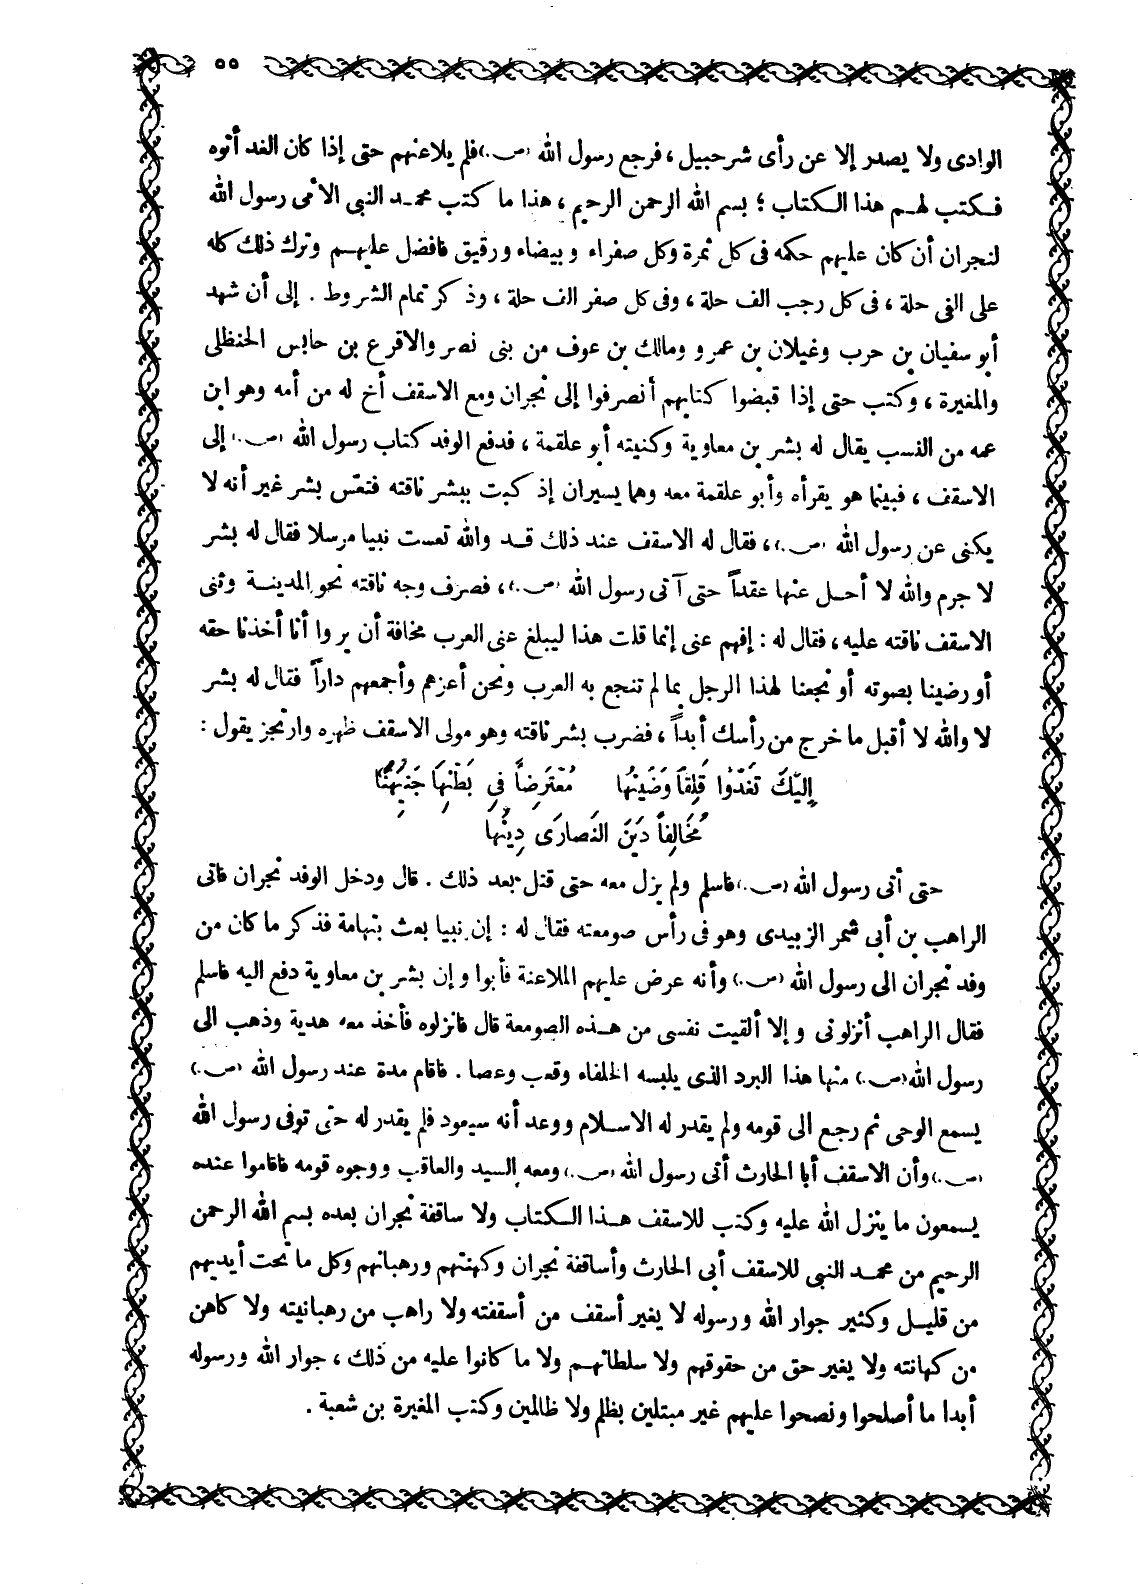 ٥٥
الوادى ولا يصدر إلا عن رأى شرحبيل ، فرجع رسول الله (ص.) فلم يلاعنهم حتى إذا كان الغد أتوه
فكتب لهم هذا الكتاب ؛ بسم الله الرحمن الرحيم ، هذا ما كتب محمد النبى الأمى رسول الله
لنجران أن كان عليهم حكمه فى كل ثمرة وكل صفراء وبيضاء ورقيق فافضل عليهم وترك ذلك كله
على الفى حلة ، فى كل رجب الف حلة ، وفى كل صفر الف حلة ، وذكر تمام الشروط . إلى أن شهد
أبو سفيان بن حرب وغيلان بن عمرو ومالك بن عوف من بنى نصر والاقرع بن حابس الحنظلى
والمغيرة ، وكتب حتى إذا قبضوا كتابهم أنصرفوا إلى نجران ومع الاسقف أخ له من أمه وهو ابن
عمه من النسب يقال له بشر بن معاوية وكنيته أبو علقمة ، فدفع الوفد كتاب رسول الله (ص.) إلى
الاسقف ، فبينما هو يقرأه وأبو علقمة معه وهما يسيران إذ كبت ببشر ناقته فتعّس بشر غير أنه لا
يكنى عن رسول الله (ص.) ، فقال له الاسقف عند ذلك قد والله تعست نبيا مرسلا فقال له بشر
لا جرم والله لا أحل عنها عقداً حتى آتى رسول الله (ص.) ، فصرف وجه ناقته نحو المدينة وثنى
الاسقف ناقته عليه ، فقال له : إفهم عنى إنما قلت هذا ليبلغ عنى العرب مخافة أن يروا أنا أخذنا حقه
أو رضينا بصوته أو نجعنا لهذا الرجل بما لم تنجع به العرب ونحن أعزهم وأجمعهم داراً فقال له بشر
لا والله لا أقبل ما خرج من رأسك أبداً ، فضرب بشر ناقته وهو مولى الاسقف ظهره وارتجز يقول :
إِلَيْكَ تَغْدُوا قَلِقاً وَضَيْنُهَا مُعْتَرِضاً فِي بَطْنِهَا جَنِيْهَنُّا
مُخَالِفاً دَيْنَ النَصارَى دِينُها
حتى أتى رسول الله (ص.) فاسلم ولم يزل معه حتى قتل بعد ذلك . قال ودخل الوفد نجران فاتى
الراهب بن أبي شمر الزبيدى وهو فى رأس صومعته فقال له : إن نبيا بعث بتهامة فذكر ما كان من
وفد نجران الى رسول الله (ص.) وأنه عرض عليهم الملاعنة فأبوا وإن بشر بن معاوية دفع اليه فاسلم
فقال الراهب أنزلونى وإلا ألقيت نفسى من هذه الصومعة قال فانزلوه فأخذ معه هدية وذهب الى
رسول الله (ص.) منها هذا البرد الذى يلبسه الخلفاء وقعب وعصا . فاقام مدة عند رسول الله (ص.)
يسمع الوحى ثم رجع الى قومه ولم يقدر له الاسلام ووعد أنه سيعود فلم يقدر له حتى توفى رسول الله
(ص.) وأن الاسقف أبا الحارث أتى رسول الله (ص.) ومعه السيد والعاقب ووجوه قومه فاقاموا عنده
يسمعون ما ينزل الله عليه وكتب للاسقف هذا الكتاب ولا ساقفة نجران بعده بسم الله الرحمن
الرحيم من محمد النبى للاسقف أبى الحارث وأساقفة نجران وكهنتهم ورهبانهم وكل ما تحت أيديهم
من قليل وكثير جوار الله ورسوله لا يغير أسقف من أسقفته ولا راهب من رهبانيته ولا كاهن
من كهانته ولا يغير حق من حقوقهم ولا سلطانهم ولا ما كانوا عليه من ذلك ، جوار الله ورسوله
أبدا ما أصلحوا ونصحوا عليهم غير مبتلين بظلم ولا ظالمين وكتب المغيرة بن شعبة .